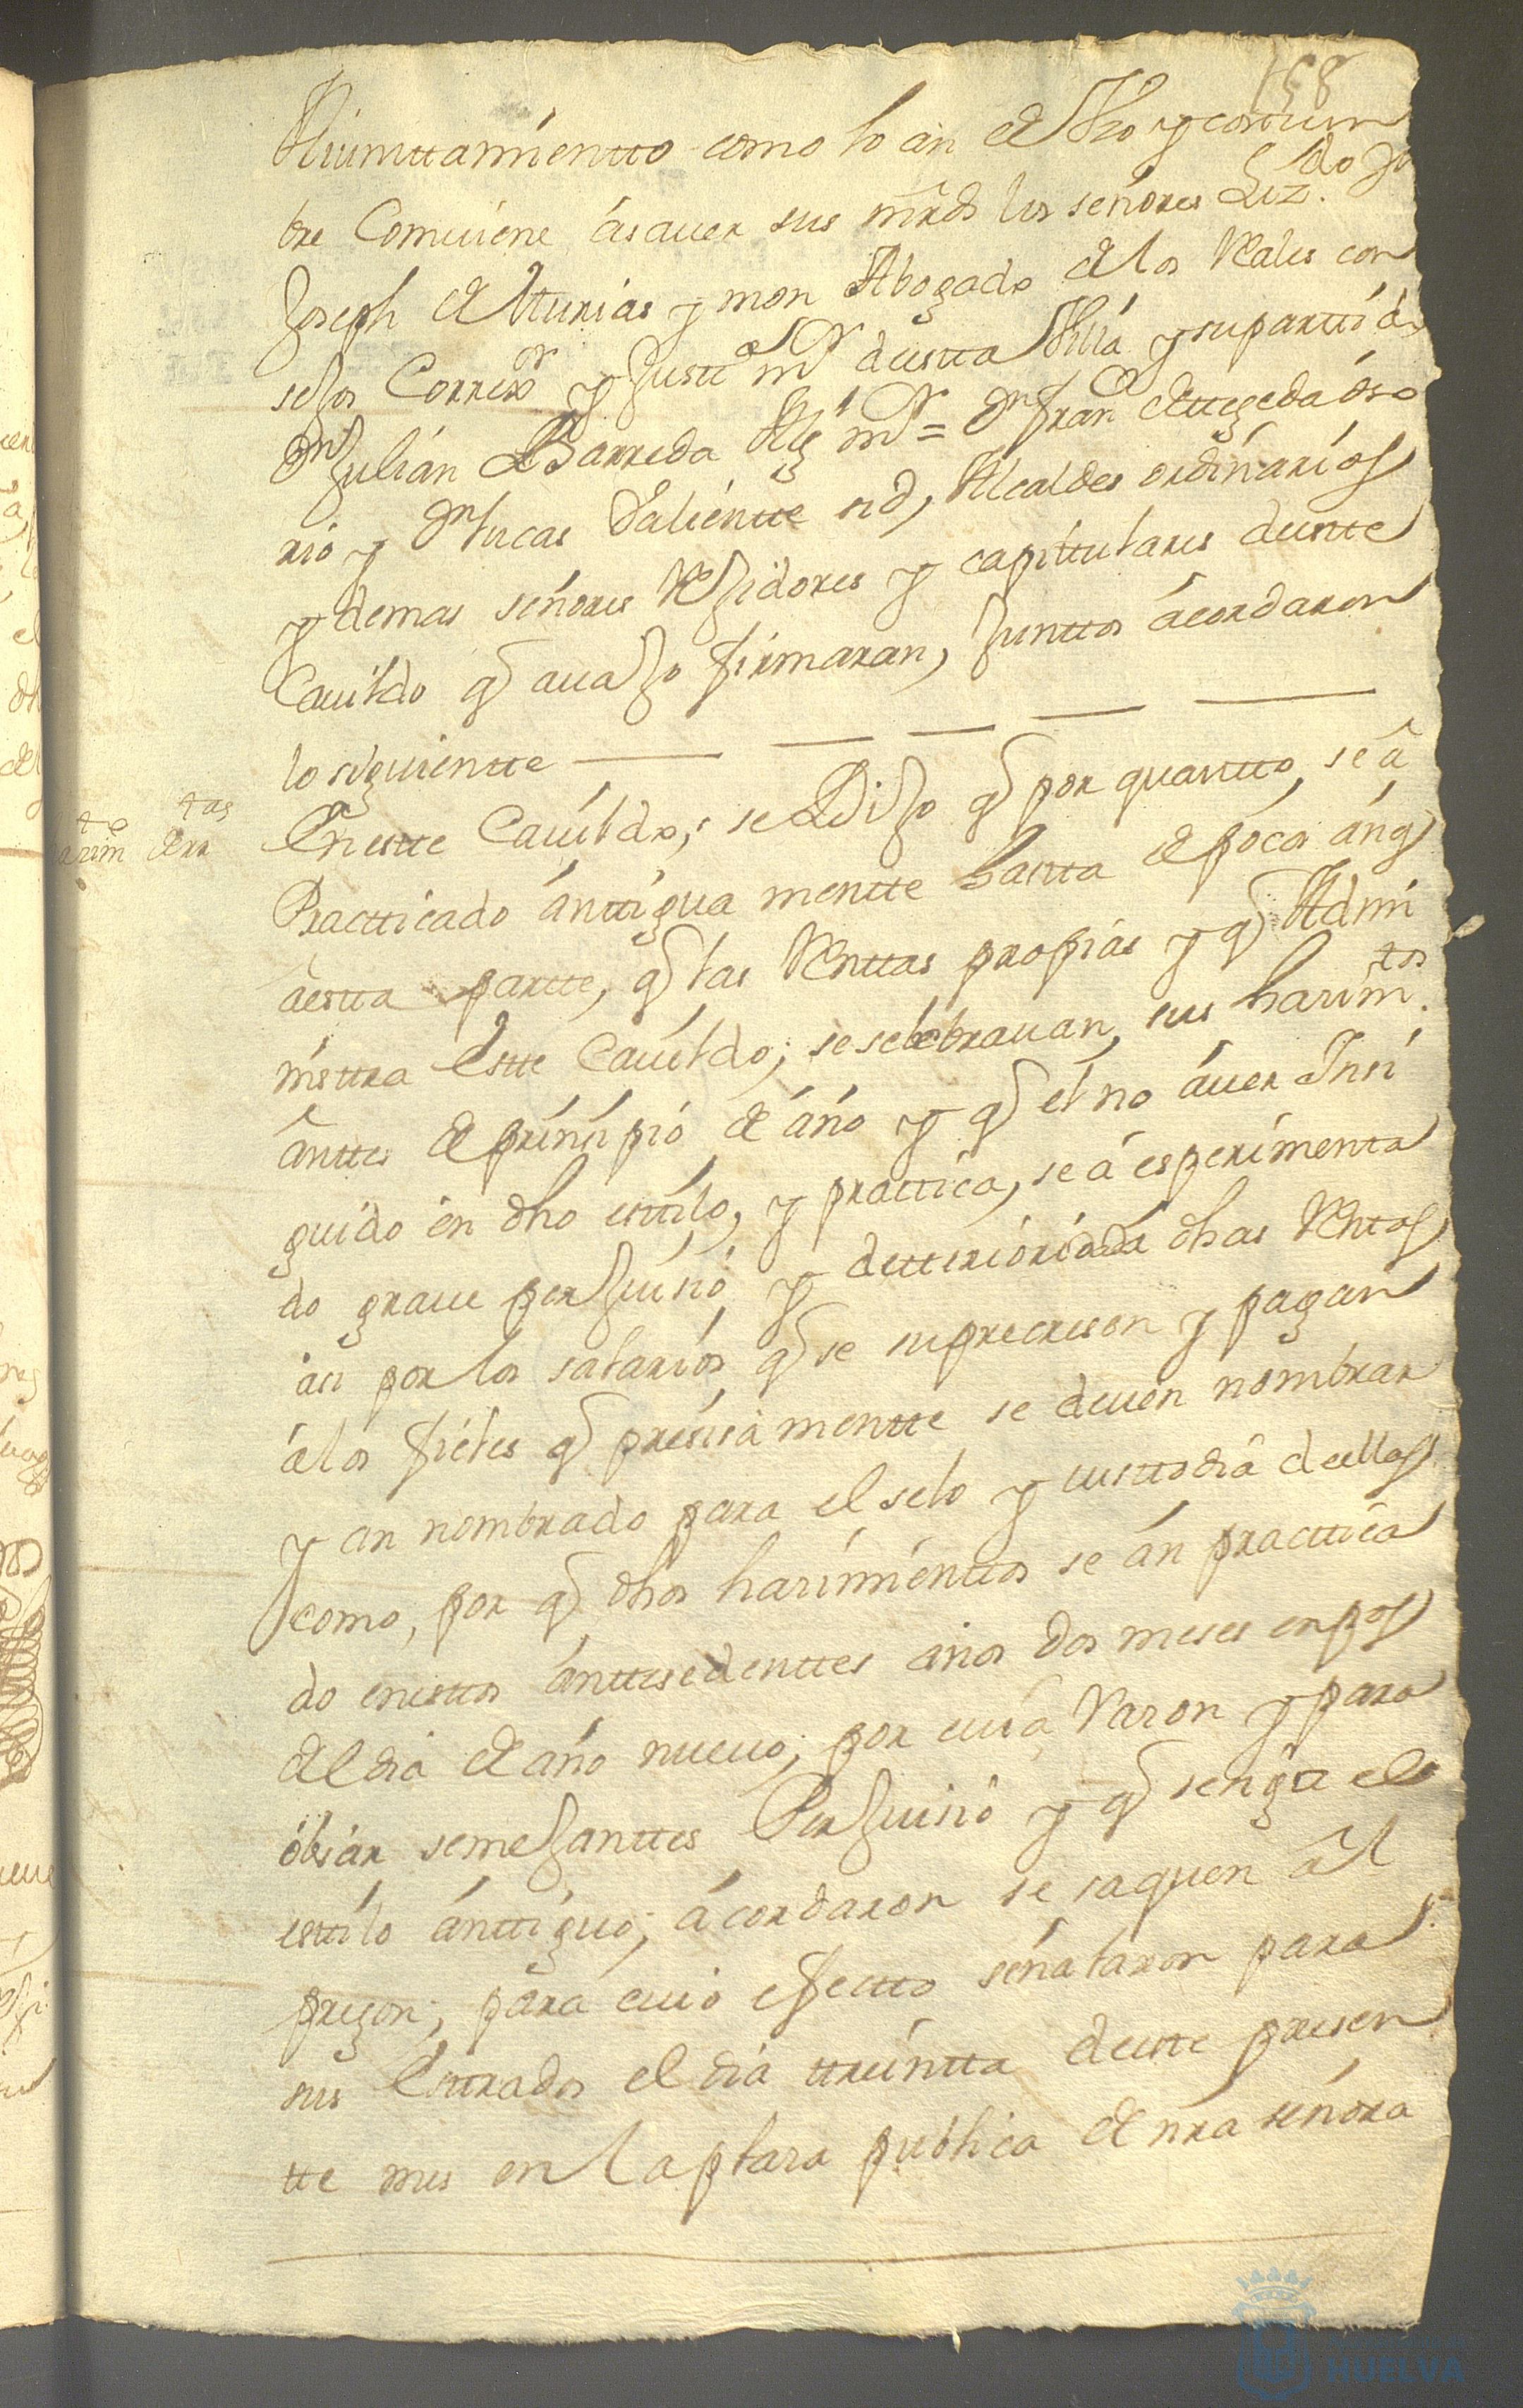 158
Aiunttamientto como lo an de Vso y costum
bre Comuiene asauer sus mrds los señores Liz.do Dn
Joseph de Asturias y mon Abogado de los Reales con
sejos Correxor y Justa mor destta Villa y supartido
Dn Julián de Barreda Alg.l mor = Dn Franco de ttegeda oso
rio y Dn Lucas Valientte sid, Alcaldes ordinarios
y demas señores Rejidores y capittulares destte
Cauildo q auajo firmaran, Junttos ácordaron
lo siguientte
tto ttas
arim de rr
En estte Cauildo; se Dijo q por quantto, se â
Practticado ánttigua mentte hastta de poca ánq
áestta partte, q las Renttas propias y q Admi
nisttra Estte Cauildo; se selebrauan, sus harim.tos
ânttes de prinsipio de áño y q el no áuer Insi
guido en dho esttilo, y practtica, se á esperimenta
do graue perjuisio y detterioridad dhas Rentas
asi por los salarios q se suprecreson y pagan
álos fieles q presisa mentte se deuen nombrar
y an nombrado para el selo y custtodiâ deellas
como, por q dhos harimienttos se án practtica
do enesttos ánttesedenttes años dos meses enpos
del dia de año nueuo; por cuia Razon y para
óbiar semejanttes Perjuisiô y q sensiga el
esttilo ánttiguo; ácordaron se saquen âl
pregon; para cuio efectto señalaron para
sus Esttrados el dia ttreintta destte presen
tte mes en la plaza publica de nra señora
HUELVA